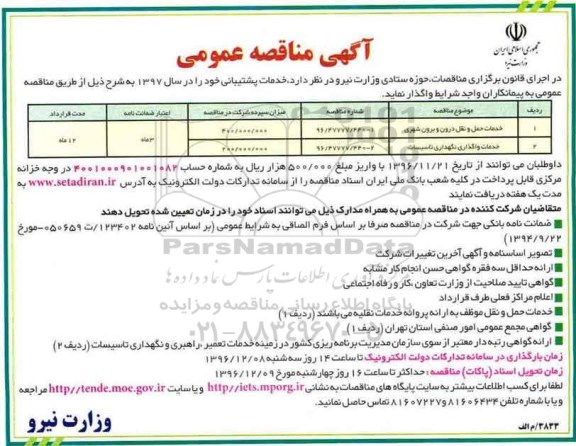 جمهوری اسلامی ایران
وزارت نیرو
آگهی مناقصه عمومی
در اجرای قانون برگزاری مناقصات،حوزه ستادی وزارت نیرو در نظر دارد،خدمات پشتیبانی خود را در سال ۱۳۹۷ به شرح ذیل از طریق مناقصه
عمومی به پیمانکاران واجد شرایط واگذار نماید.
ردیف موضوع مناقصه شماره مناقصه میزان سپرده شرکت در مناقصه اعتبار ضمانت نامه مدت قرارداد
۱ خدمات حمل و نقل درون و برون شهری ۴۰۰/۰۰۰/۰۰۰ ۳ماه ۱۲ ماه
۲ خدمات واگذاری نگهداری تاسیسات ۲۰۰/۰۰۰/۰۰۰
داوطلبان می توانند از تاریخ ۱۳۹۶/۱۱/۲۱ با واریز مبلغ ۵۰۰/۰۰۰ هزار ریال به شماره حساب ۴۰۰۱۰۰۰۹۰۱۰۰۱۰۸۲ در وجه خزانه
مرکزی قابل پرداخت در کلیه شعب بانک ملی ایران اسناد مناقصه را از سامانه تدارکات دولت الکترونیک به آدرس www.setadiran.ir به
مدت یک هفته دریافت نمایند
متقاضیان شرکت کننده در مناقصه عمومی به همراه مدارک ذیل می توانند اسناد خود را در زمان تعیین شده تحویل دهند
ضمانت نامه بانکی جهت شرکت در مناقصه صرفا بر اساس فرم الصاقی به شرایط عمومی (بر اساس آئین نامه ۱۲۳۴۰۲/ت ۵۰۶۵۹-مورخ
۱۳۹۴/۹/۲۲)
تصویر اساسنامه و آگهی آخرین تغییرات شرکت
ارائه حداقل سه فقره گواهی حسن انجام کار مشابه
گواهی تایید صلاحیت از وزارت تعاون ،کار و رفاه اجتماعی
اعلام مراکز فعلی طرف قرارداد
خدمات حمل و نقل موظف به ارائه پروانه خدمات نقلیه می باشند (ردیف ۱)
گواهی مجمع عمومی امور صنفی استان تهران (ردیف ۱)
ارائه گواهی رتبه دار معتبر از سوی سازمان مدیریت برنامه ریزی کشور در زمینه خدمات تعمیر ،راهبری و نگهداری تاسیسات (ردیف ۲)
زمان بارگذاری در سامانه تدارکات دولت الکترونیک تا ساعت ۱۴ روز سه شنبه ۱۳۹۶/۱۲/۰۸
زمان تحویل اسناد (پاکات) مناقصه : حداکثر تا ساعت ۱۶ روز چهارشنبه مورخ ۱۳۹۶/۱۲/۰۹
لطفا برای کسب اطلاعات بیشتر به سایت پایگاه های مناقصات به نشانی http//iets.mporg.ir و یا سایت http//tende.moe.gov.ir مراجعه
و یا با شماره تلفن ۸۱۶۰۶۴۳۴ و ۸۱۶۰۷۲۲۷ تماس حاصل نمائید.
۳۸۳۳/م الف
وزارت نیرو
ParsNamadData
پایگاه اطلاع رسانی مناقصه و مزایده
۰۲۱-۸۸۳۴۹۶۷۰